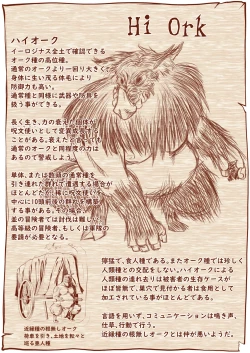 Hi Ork
ハイオーク
イーロジナス全土で確認できる
オーク種の高位種。
通常のオークより一回り大きく、
身体に生い茂る体毛により
防御力も高い。
通常種と同様に武器や防具を
扱う事ができる。
長く生き、力の衰えた個体が
呪文使いとして変異成長する
ことがある。衰えたと言っても
通常のオークと同程度の力は
あるので警戒しよう
単体、または数頭の通常種を
引き連れた群れで遭遇する場合が
ほとんどだが、稀に呪文使いを
中心に10頭前後の群れを構築
する事がある。その場合、
並の冒険者では討伐は難しく
高等級の冒険者、もしくは軍隊の
要請が必要となる。
獰猛で、食人種である。またオーク種では珍しく
人類種との交配をしない。ハイオークによる
人類種の連れ去りは被害者の生存ケースが
ほぼ皆無で、巣穴で見付かる者は食用として
加工されている事がほとんどである。
言語を用いず、コミュニケーションは鳴き声、
仕草、行動で行う。
近縁種の根無しオークとは仲が悪いようだ。
近縁種の根無しオーク
荷車を引き、土地を転々と
巡る亜人種